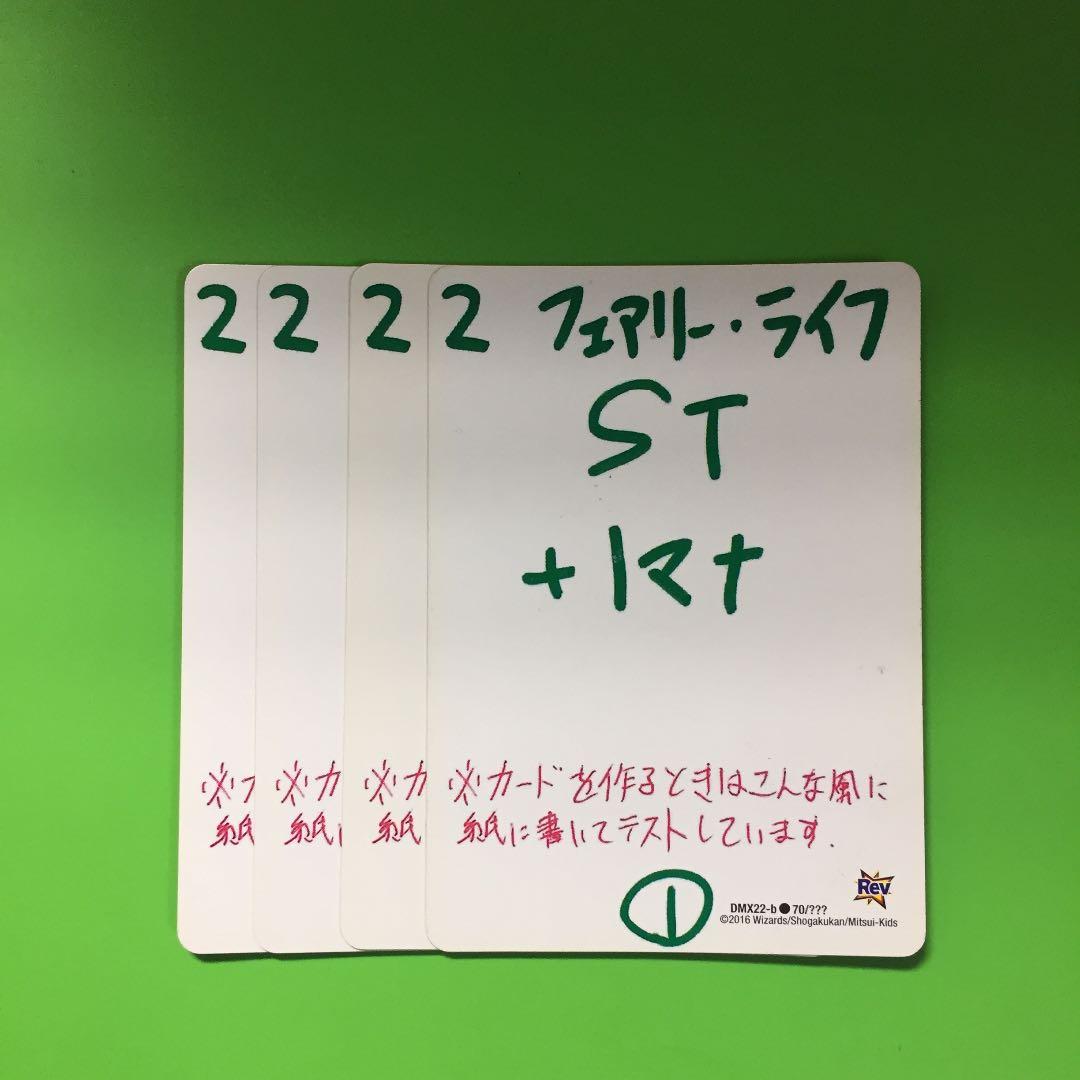 2
2
2
2 フェアリー・ライフ
ST
+1マナ
※カ
※カ
※カ
※カードを作るときはこんな風に
紙
紙に
紙
紙に書いてテストしています.
1
Rev
DMX22-b●70/???
©2016 Wizards/Shogakukan/Mitsui-Kids